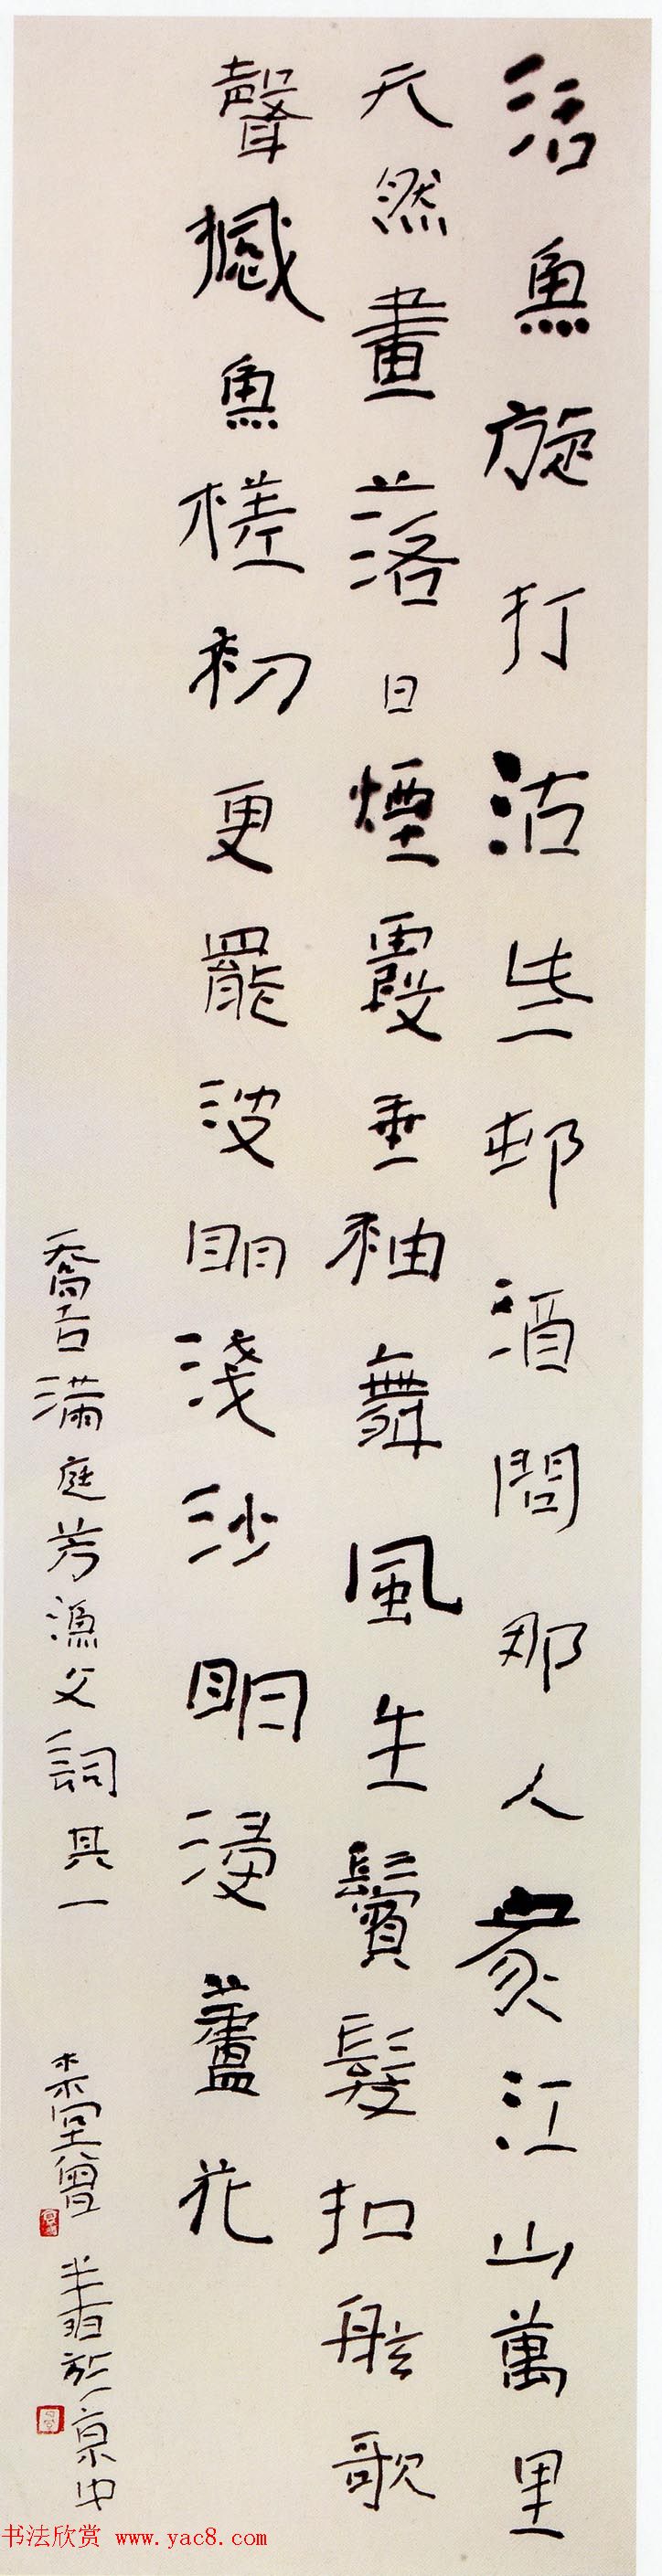 活魚旋打沽些邨酒問那人家江山萬里
天然畫落日煙霞垂袖舞風生鬢髮扣舷歌
聲撼魚槎初更罷波眀淺沙眀浸蘆花
喬吉滿庭芳漁父詞其一
書於京中
书法欣赏 www.yac8.com